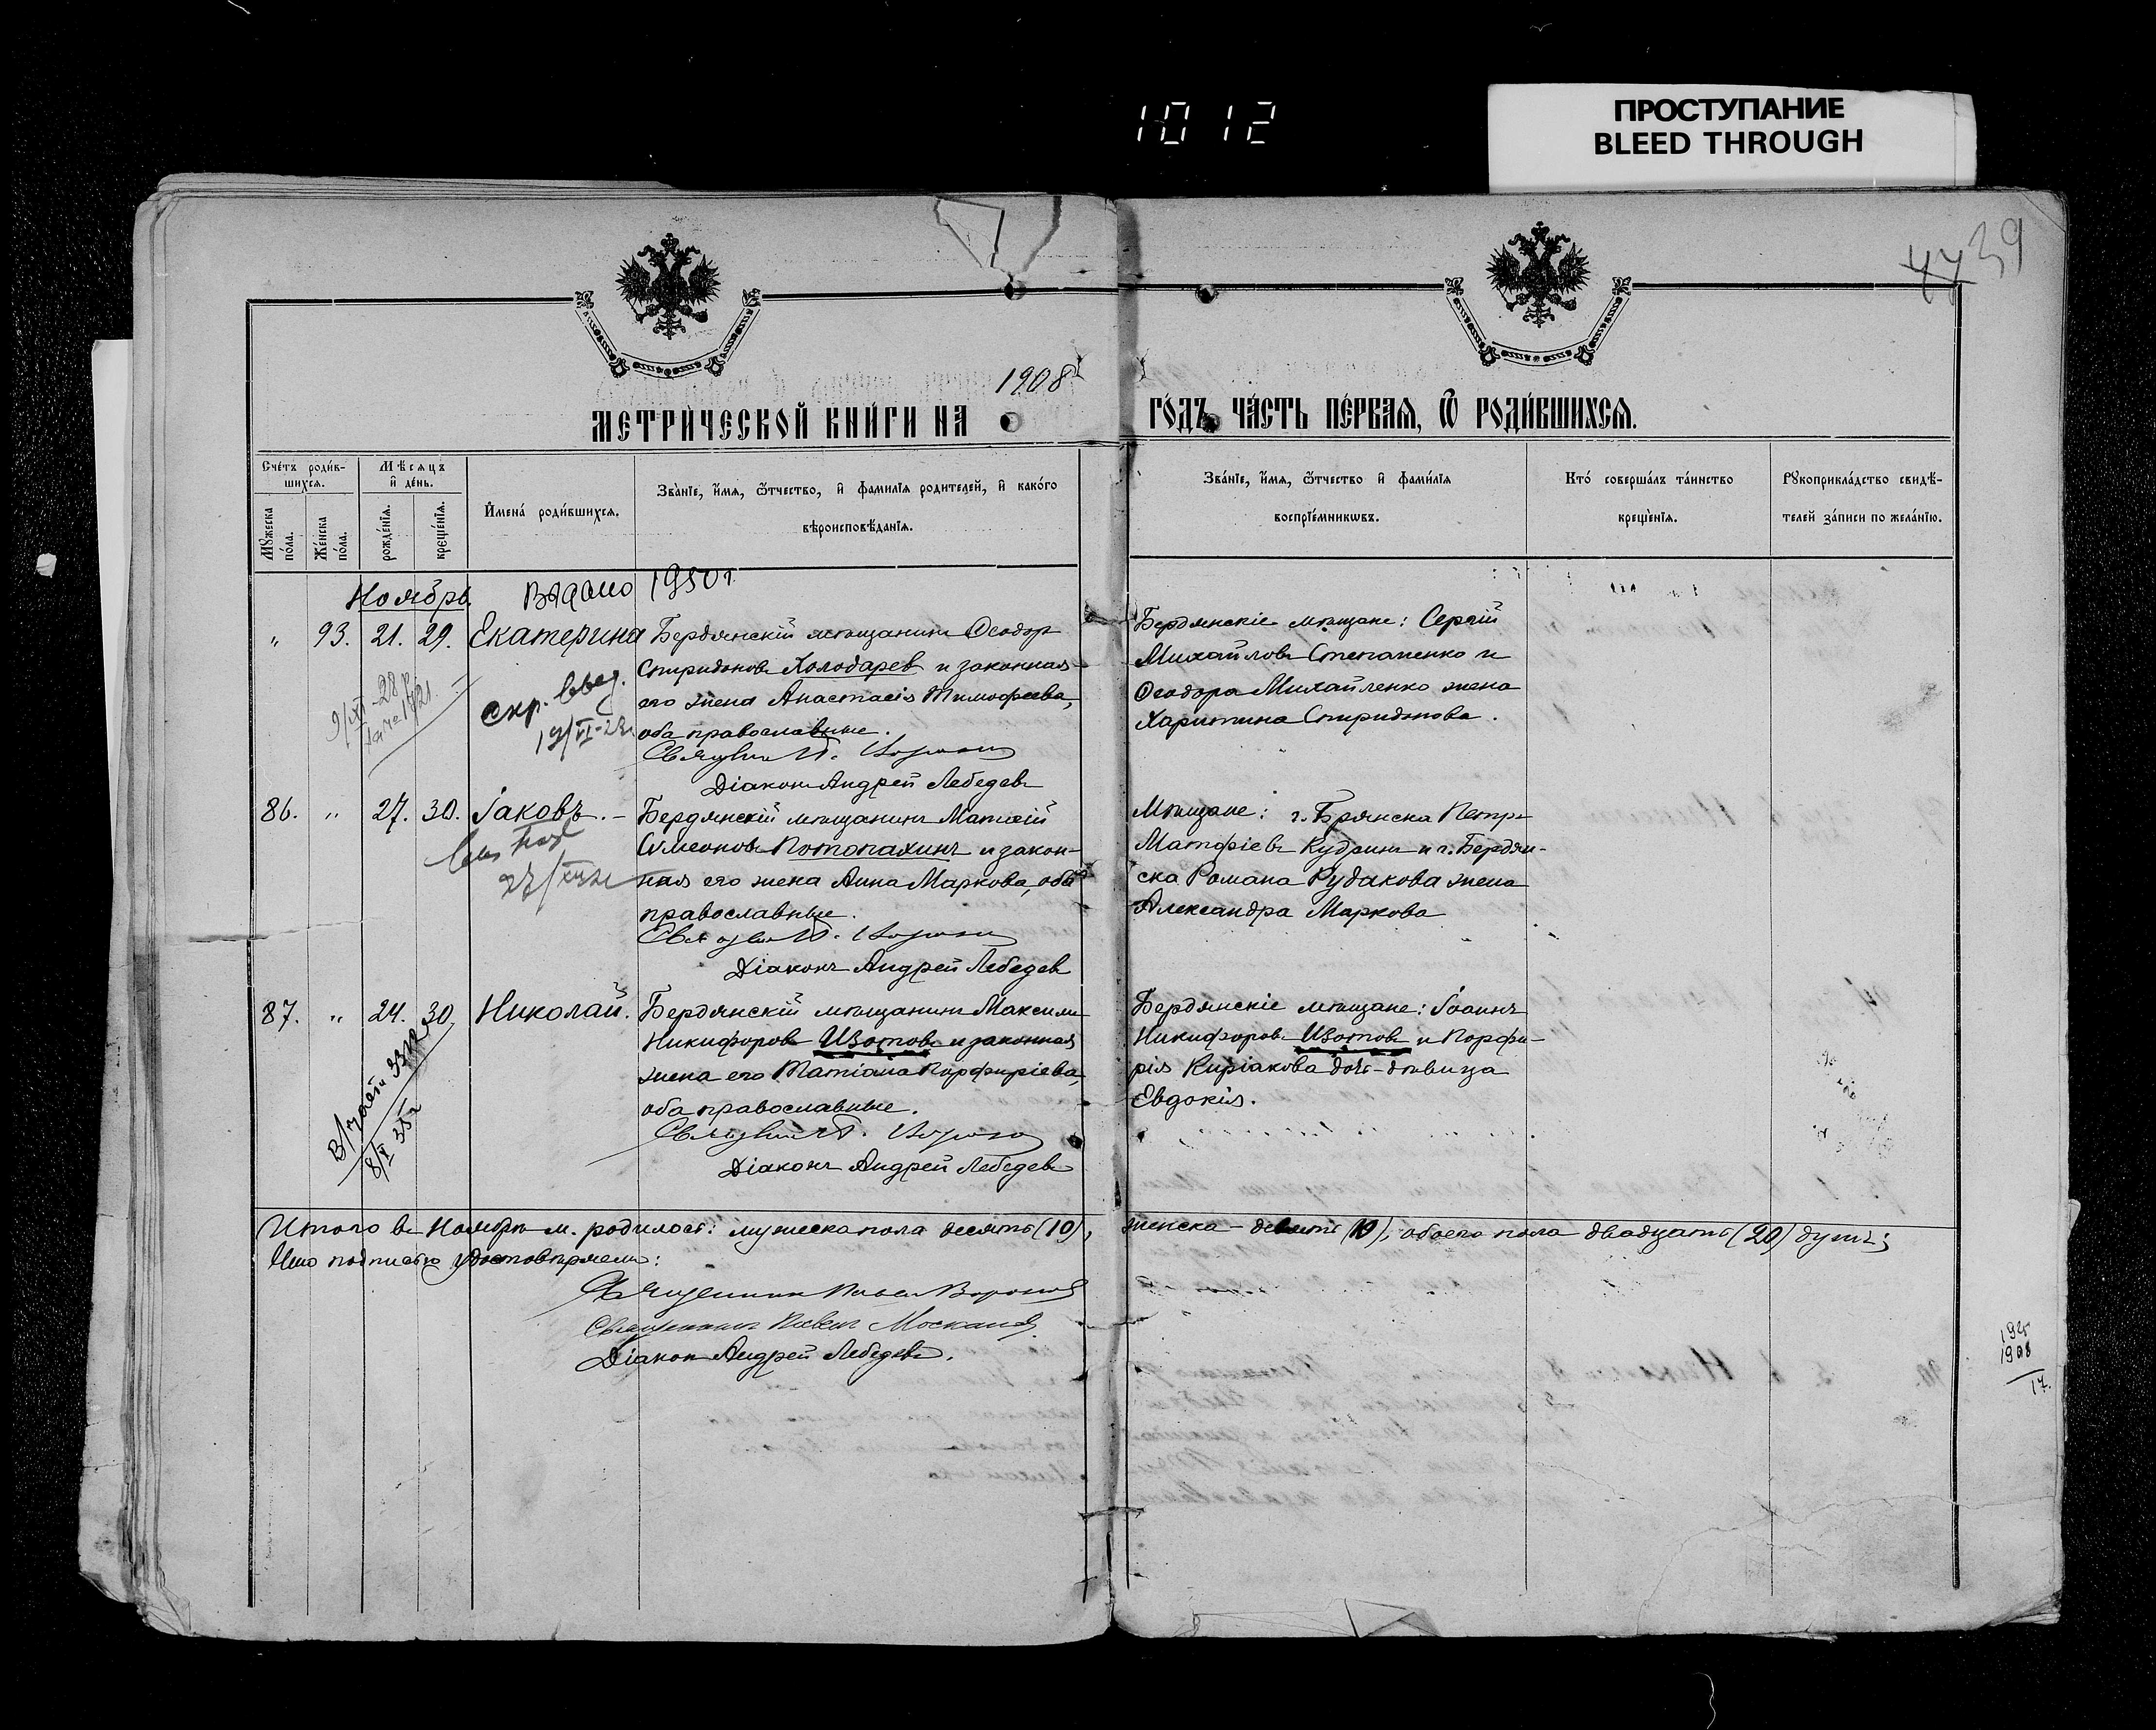 10 12
ПРОСТУПАНИЕ
BLEED THROUGH
39
1908
МЕТРИЧЕСКОЙ КНИГИ НА
ГОДЪ ЧАСТЬ ПЕРВАЯ, Ѿ РОДИВШИХСЯ.
Счетъ родив-
шихся.
Мѣсяцъ
и день.
Мꙋжеска
пола.
Женска
пола.
рожденїя.
крещенїя.
Имена родившихся.
Званїе, имя, ѿчество, и фамилїя родителей, и какого
вѣроисповѣданїя.
Званїе, имя, ѿчество и фамилїя
воспрїемникѡвъ.
Кто совершалъ таинство
крещенїя.
Рꙋкоприкладство свидѣ-
телей записи по желанїю.
Ноябрь
Видано 1950г.
„ 93. 21. 29. Екатерина
Бердянскій мѣщанинъ Ѳеодоръ
Спиридоновъ Холодаревъ и законная
его жена Анастасія Тимоѳеева,
оба православные.
Діаконъ Андрей Лебедевъ
Бердянскіе мѣщане: Сергій
Михайловъ Степаненко и
Ѳеодора Михайленко жена
Харитина Спиридонова.
86. „ 27. 30. Іаковъ. –
Бердянскій мѣщанинъ Матѳій
Сѵмеоновъ Потопахинъ и закон-
ная его жена Анна Маркова, оба
православные.
Діаконъ Андрей Лебедевъ
Мѣщане: г. Брянска Петръ
Матѳіевъ Кудринъ и г. Бердян-
ска Романа Рудакова жена
Александра Маркова
87. „ 24. 30. Николай.
Бердянскій мѣщанинъ Максимъ
Никифоровъ Изотовъ и законная
жена его Татіана Порфиріева,
оба православные.
Діаконъ Андрей Лебедевъ
Бердянскіе мѣщане: Іоаннъ
Никифоровъ Изотовъ и Порфи-
рія Киріакова дочь-дѣвица
Евдокія.
Итого въ Ноябрѣ м. родилось: мужеска пола десять (10),
женска – девять (10), обоего пола двадцать (20) душъ;
Что подписью удостовѣряемъ:
Священникъ Павелъ Вороновъ
Священникъ
Діаконъ Андрей Лебедевъ.
1925
1908
17.